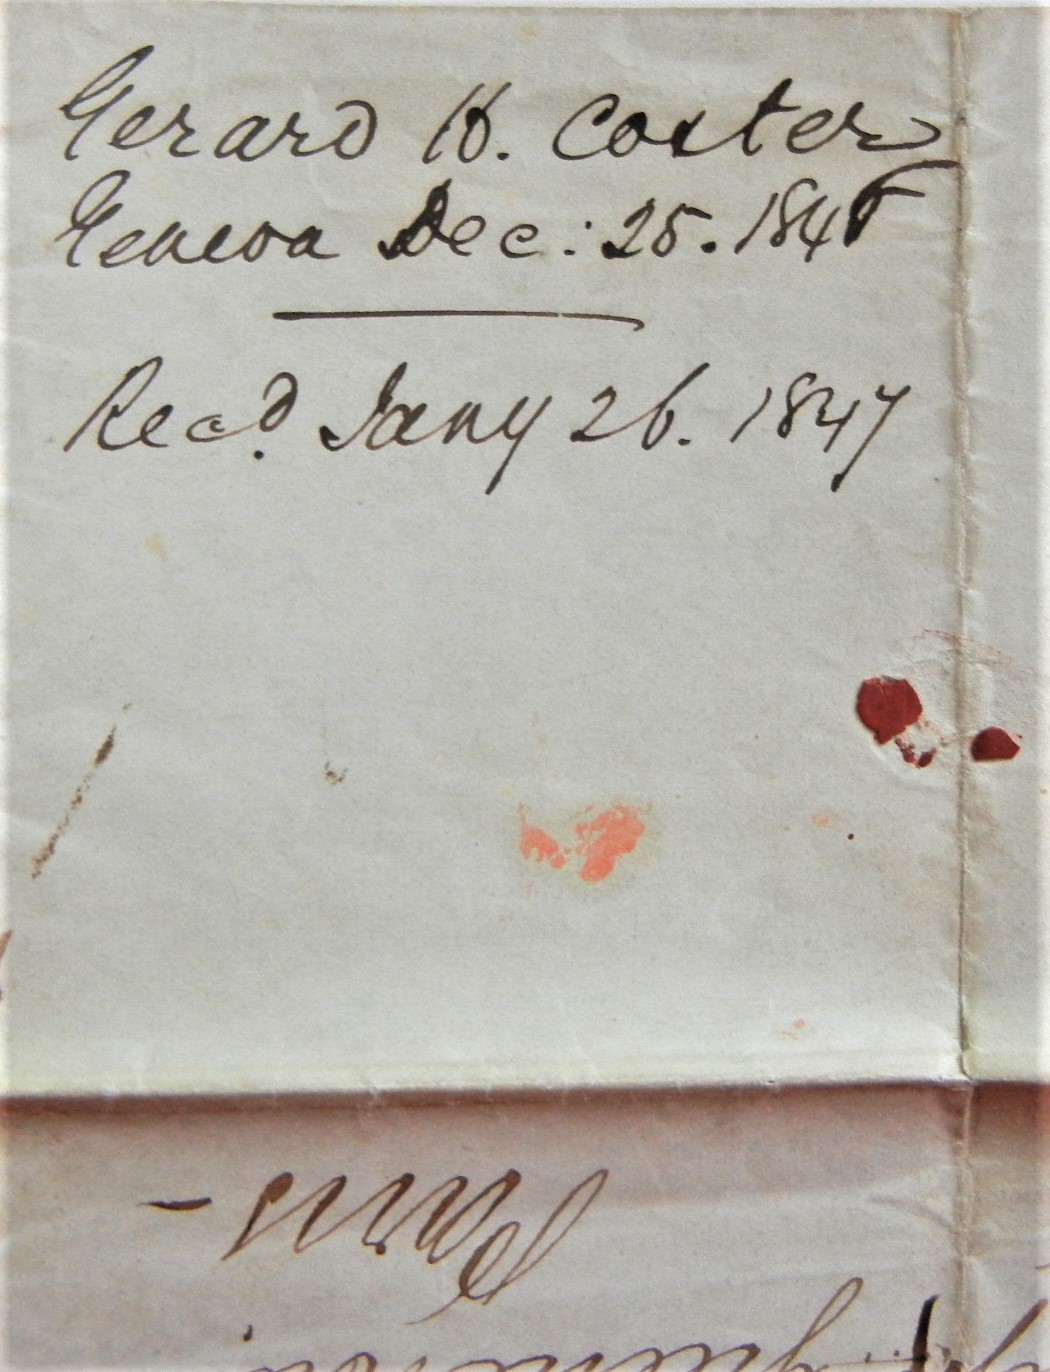 Gerard H. Coster
Geneva Dec: 25. 1846
Recd. Jany 26. 1847
Paris -